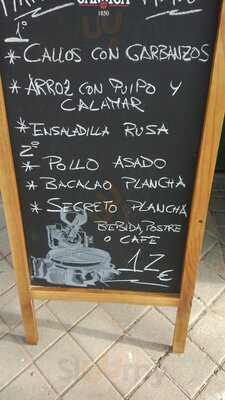 1º
* CALLOS CON GARBANZOS
* ARROZ CON PULPO Y
CALAMAR
* ENSALADILLA RUSA
2º
* POLLO ASADO
* BACALAO PLANCHA
* SECRETO PLANCHA
BEBIDA, POSTRE
O CAFE
12€